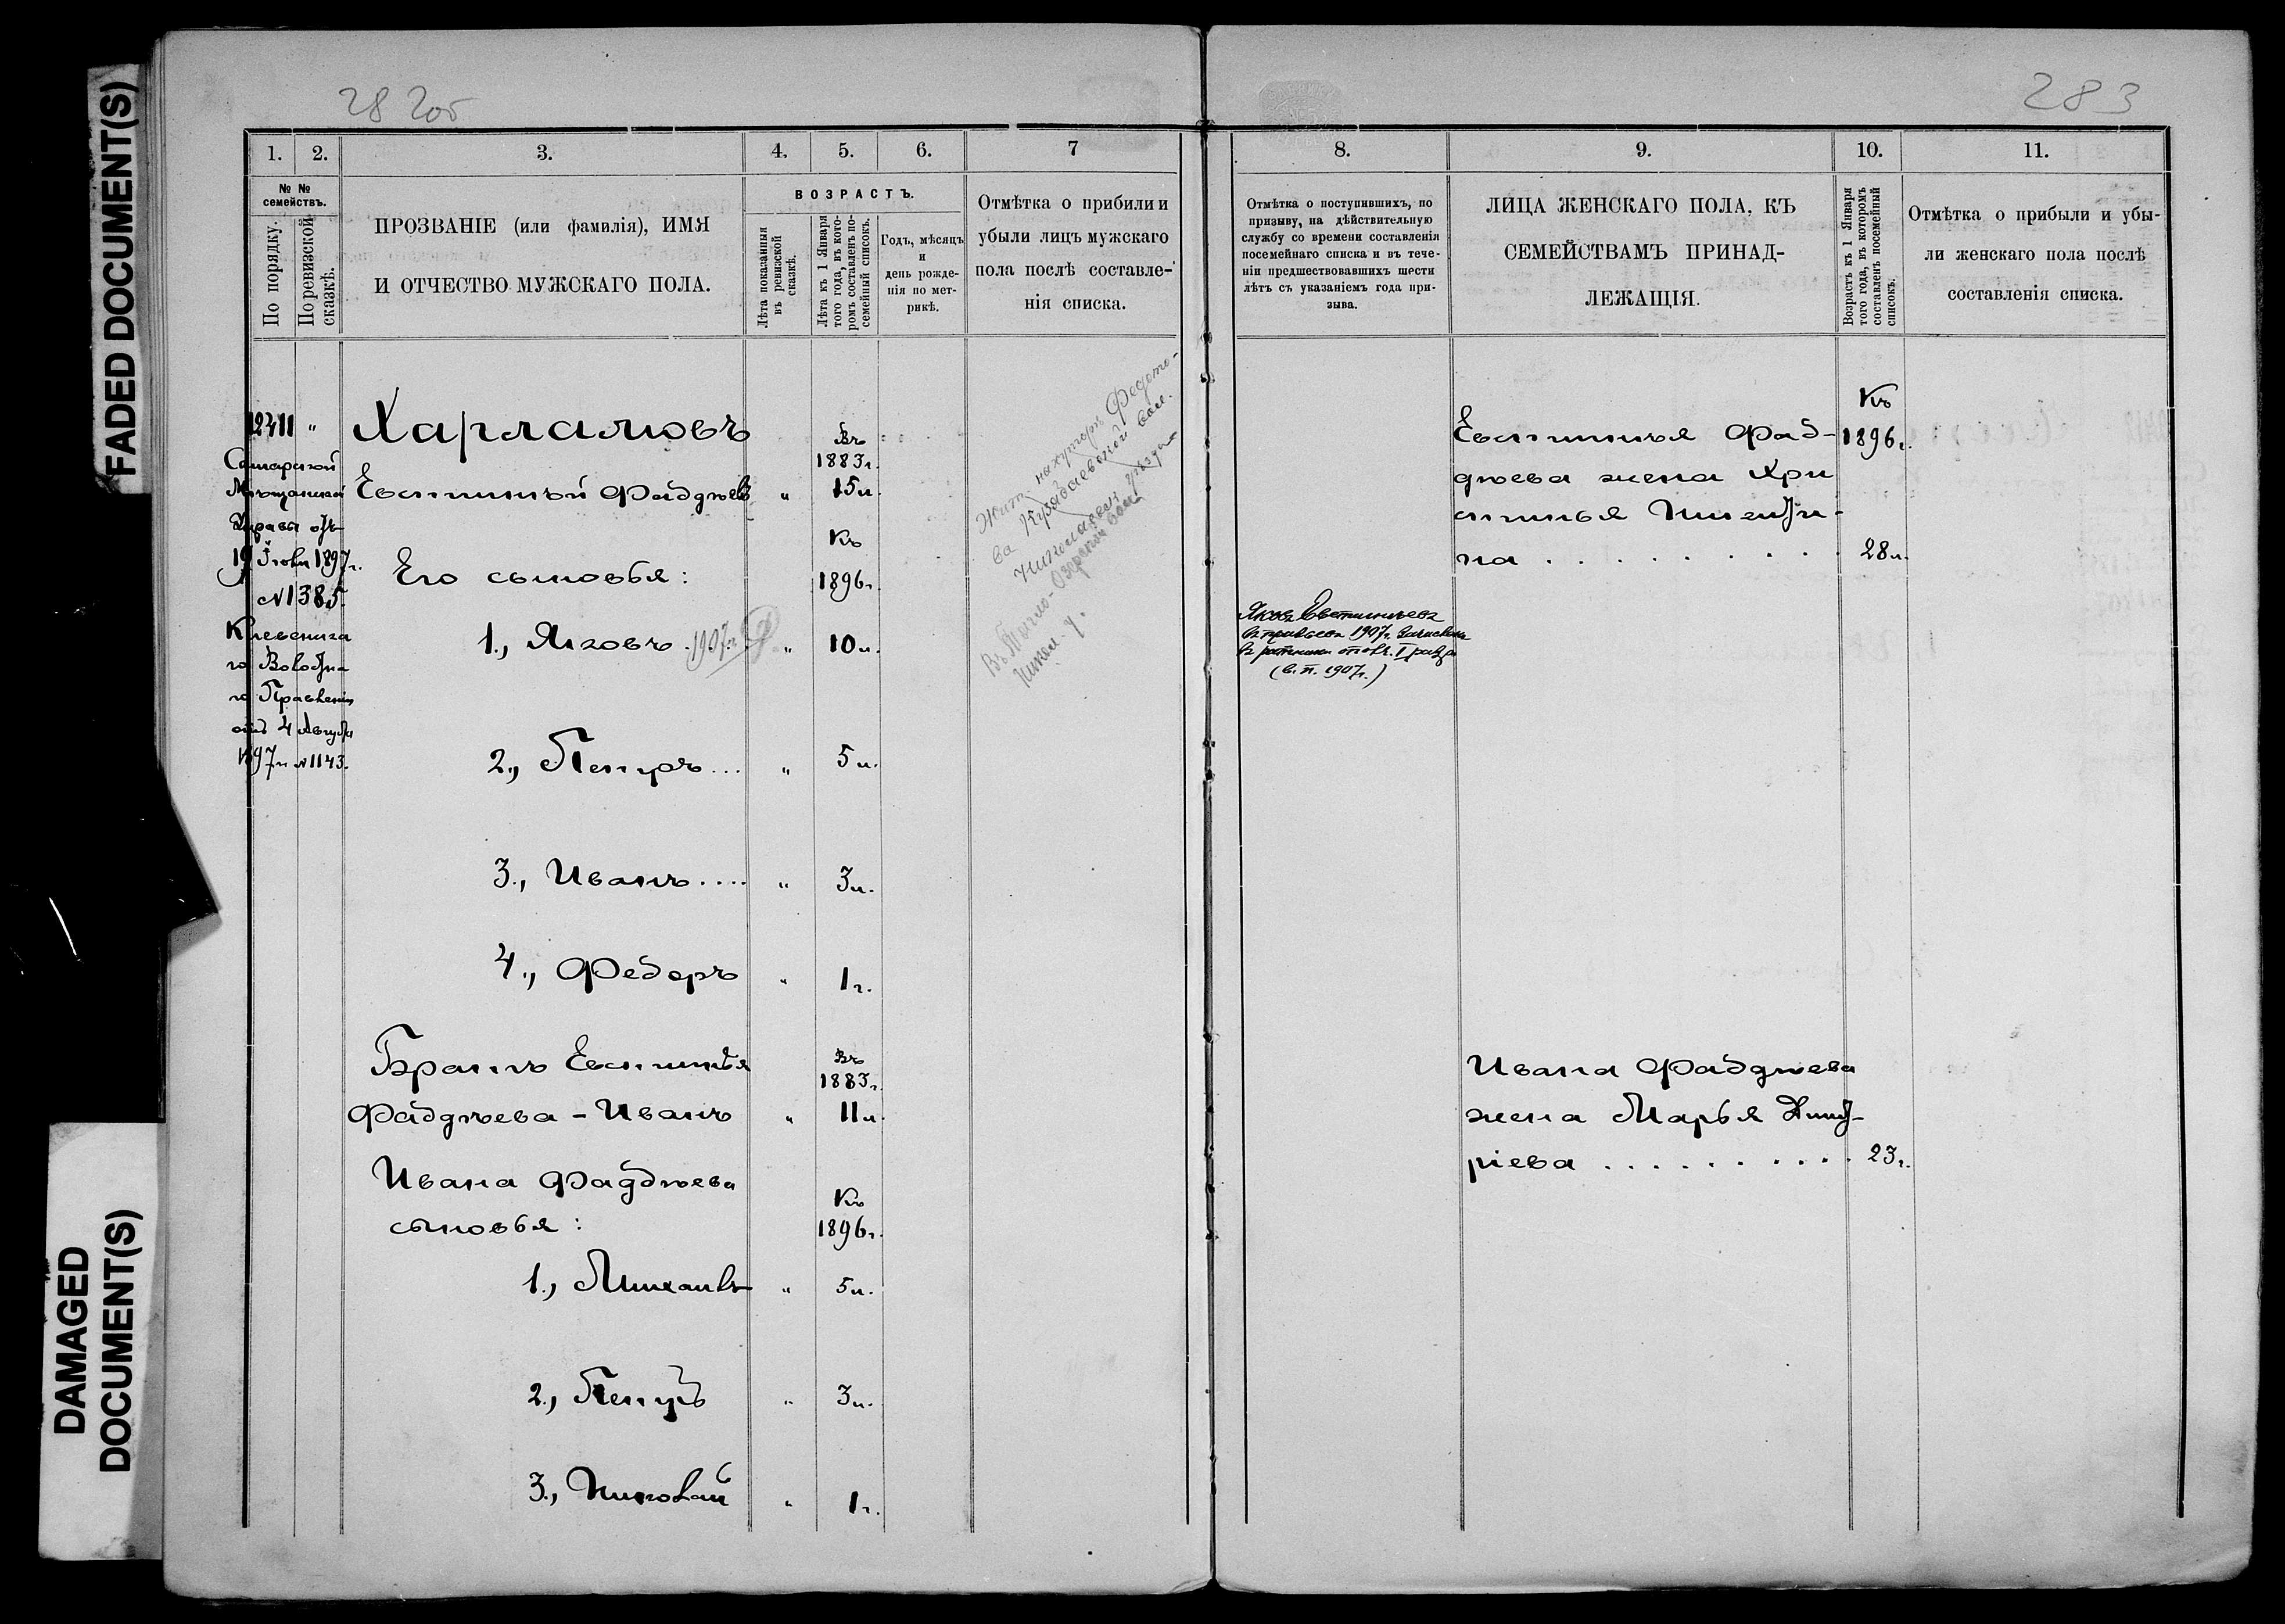 FADED DOCUMENT(S)
DAMAGED
DOCUMENT(S)
28 2об
1.
2.
3.
4.
5.
6.
7
№ №
семействъ.
По порядку.
По ревизской
сказкѣ.
ПРОЗВАНІЕ (или фамилія), ИМЯ
И ОТЧЕСТВО МУЖСКАГО ПОЛА.
ВОЗРАСТЪ.
Лѣта показанныя
въ ревизской
сказкѣ.
Лѣта къ 1 Января
того года, въ кото-
ромъ составленъ по-
семейный списокъ.
Годъ, мѣсяцъ
и
день рожде-
нія по мет-
рикѣ.
Отмѣтка о прибили и
убыли лицъ мужскаго
пола послѣ составле-
нія списка.
12411 "
Самарской
Мѣщанской
Управы отъ
19 Іюля 1897 г.
№ 1385.
Клевенска
го Волостна
го Правленія
отъ 4 Августа
1897 г. № 1143.
Харламовъ
Евстигнѣй Фаддѣевъ " 
Въ
1883 г.
15 л.
Его сыновья:
Къ
1896 г.
1., Яковъ 1907 г. " 10 л.
2., Петръ... " 5 л.
3., Иванъ..... " 3 л.
4., Федоръ " 1 г.
Братъ Евстигнѣя
Въ
1883 г.
Фаддѣева - Иванъ " 11 л.
Ивана Фаддѣева
сыновья:
Къ
1896 г.
1., Михаилъ " 5 л.
2., Петръ " 3 л.
3., Николай " 1 г.
Жит. на хуторѣ Федото-
ва Кузябаевской вол.
Николаевск. уѣзда
Въ Озерской вол.
Никол. у.
283
8.
9.
10.
11.
Отмѣтка о поступившихъ, по
призыву, на дѣйствительную
службу со времени составленія
посемейнаго списка и въ тече-
ніи предшествовавшихъ шести
лѣтъ съ указаніемъ года при-
зыва.
ЛИЦА ЖЕНСКАГО ПОЛА, КЪ
СЕМЕЙСТВАМЪ ПРИНАД-
ЛЕЖАЩІЯ.
Возрастъ къ 1 Января
того года, въ которомъ
составленъ посемейный
списокъ.
Отмѣтка о прибыли и убы-
ли женскаго пола послѣ
составленія списка.
Къ
1896 г.
Евстигнѣя Фад-
дѣева жена Хри
стинья Никити-
на . . . . . . . . . . 28 л.
Яковъ Евстигнѣевъ
въ призывъ 1907 г. зачисленъ
въ ратники ополч. I разр.
(в. п. 1907 г.)
Ивана Фаддѣева
жена Марья Дмит-
ріева . . . . . . . . . . 23 г.